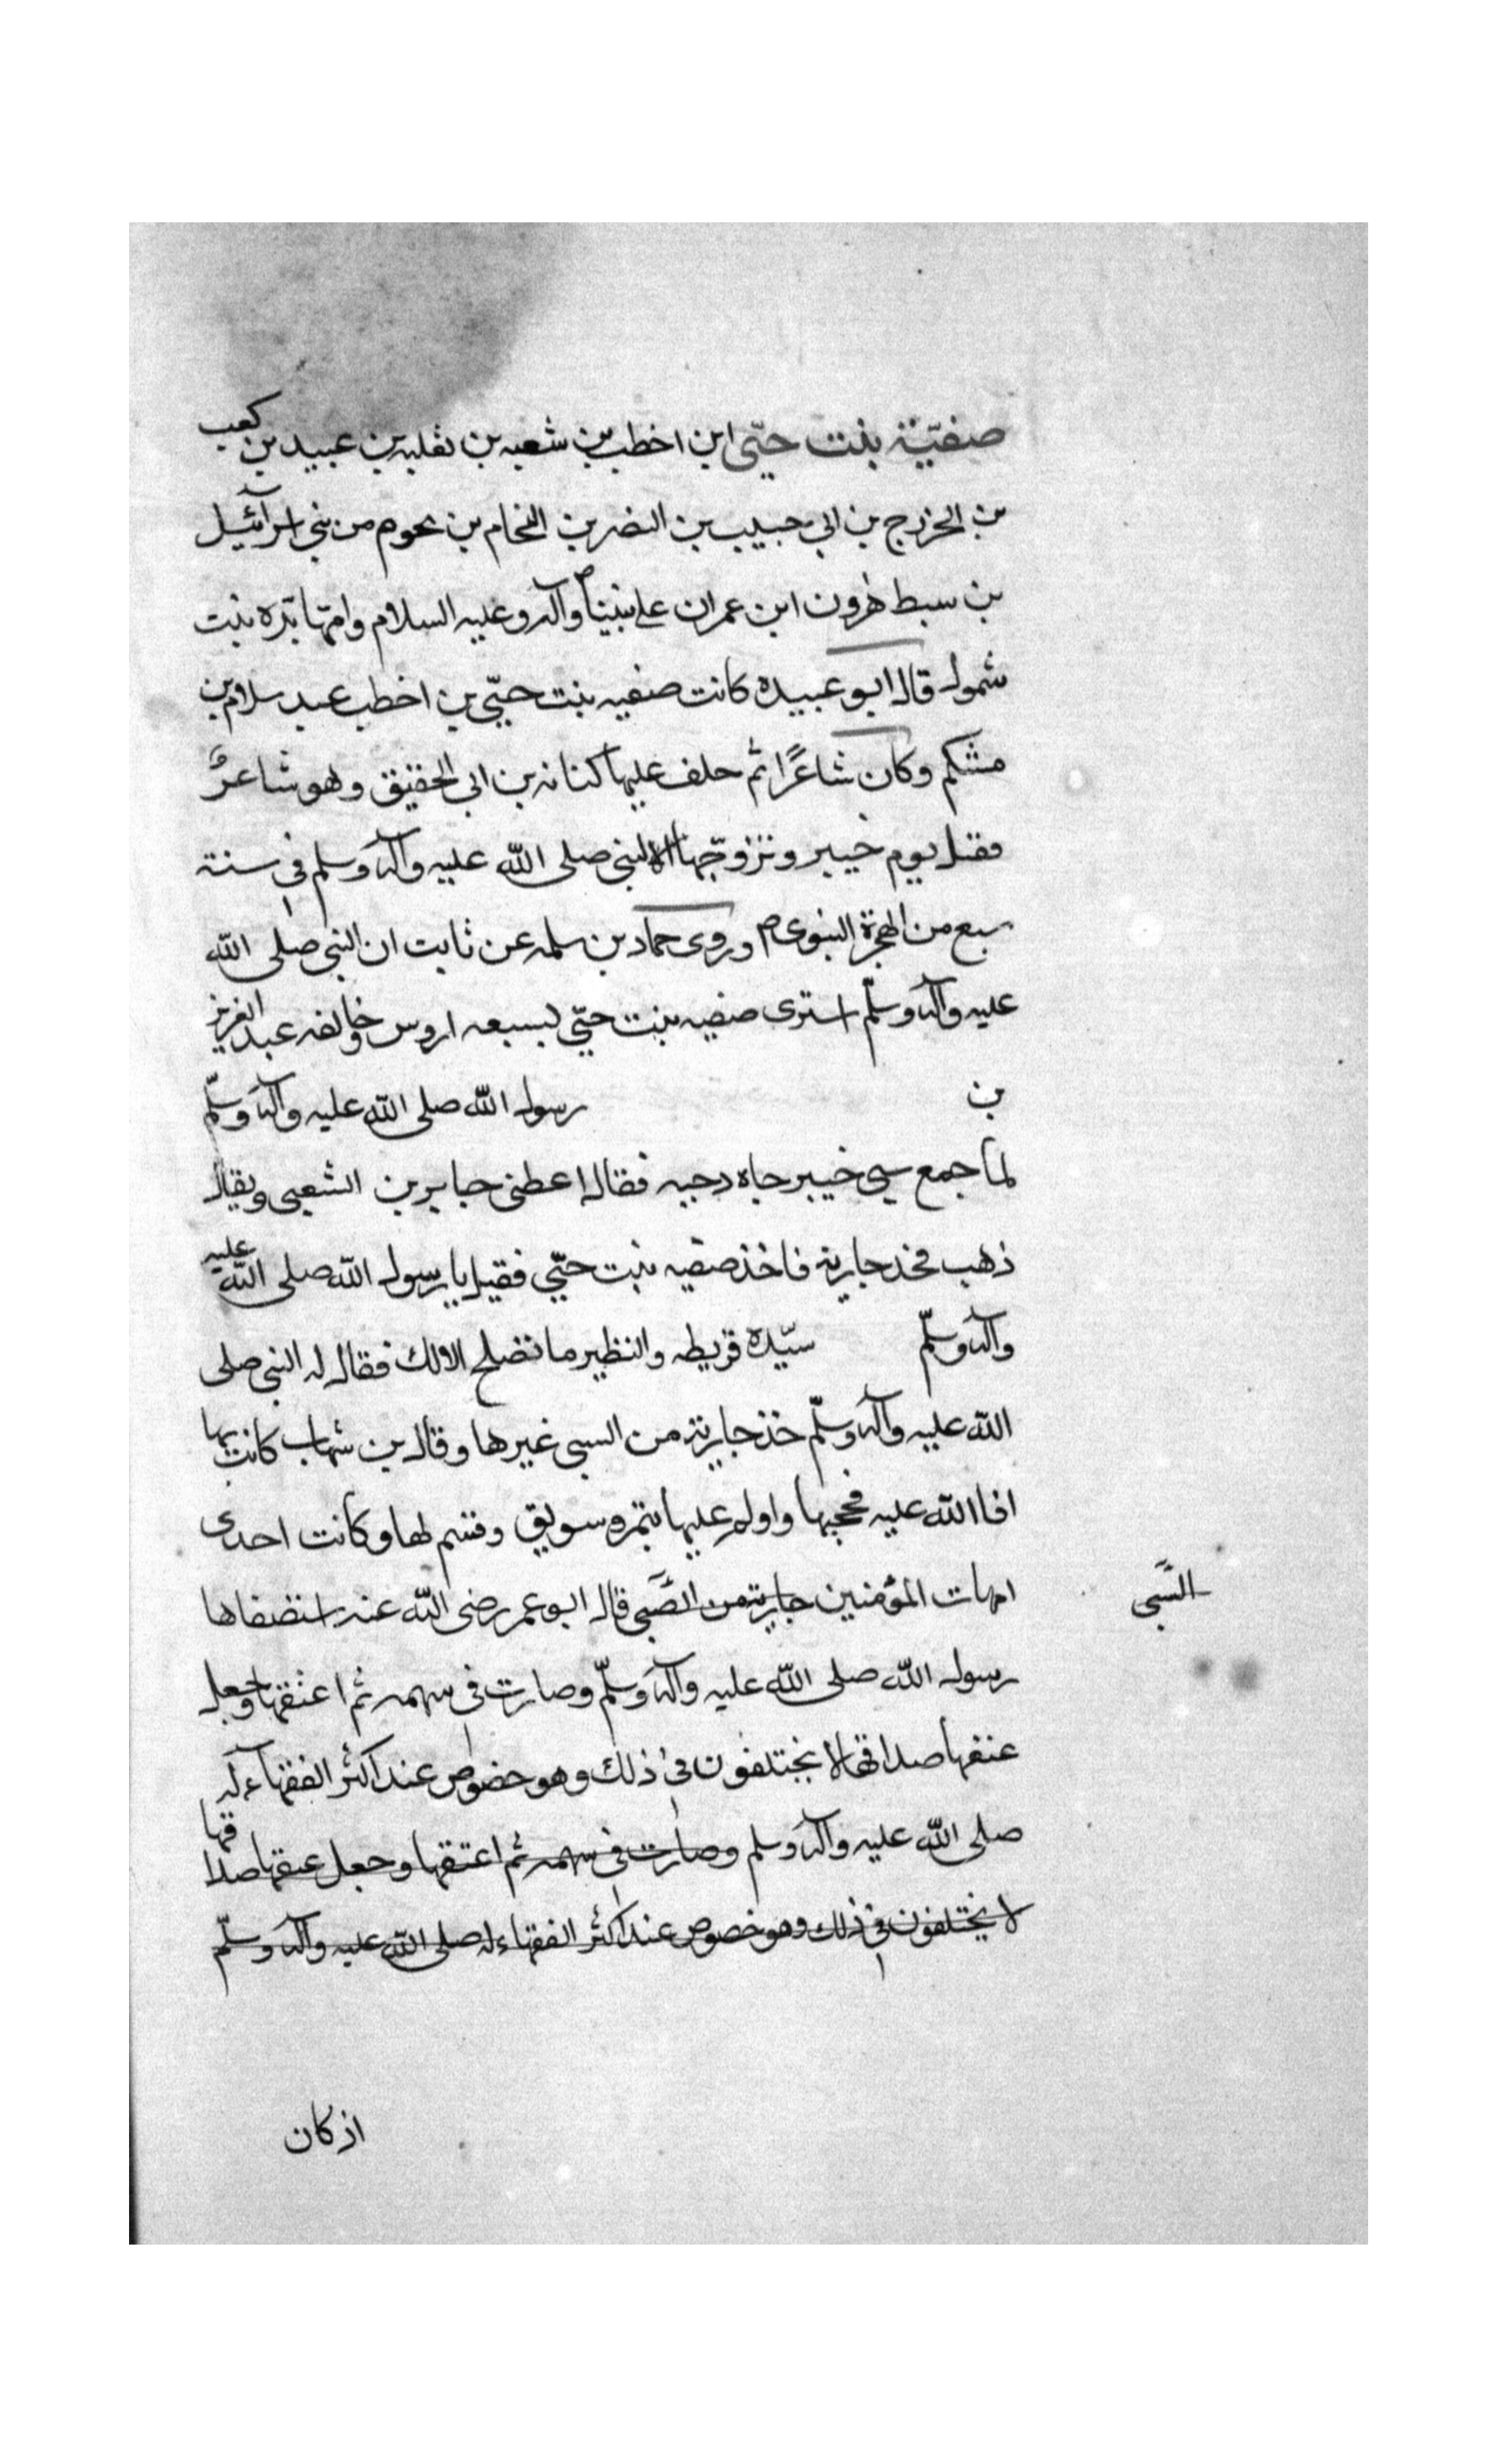 صفيّة بنت حيّي ابن اخطب بن شعيه بن ثعلبه بن عبيد بن كعب
بن الخزرج بن ابي حبيب بن النضر بن النحام بن نحوم من بني اسرآئيل
بن سبط هٰرون ابن عمران على نبيناص وآله وعليه السلام وامّها بَرّه بنت
شمول قال ابو عبيده كانت صفيه بنت حيّي بن اخطب عند سلام بن
مشكم وكان شاعرًا ثم حلف عليها كنانه بن ابي الحقيق وهو شاعرٌ
فقتل يوم خيبر وتزوّجها النبي صلى الله عليه وآله وسلم في سنة
سبع من الهجرة النبوى ص وروى حماد بن سلمه عن ثابت ان النبي صلى الله
عليه وآله وسلّم اشترى صفيه بنت حيّي بسبعه اروس وخالفه عبد العزيز
بن رسول الله صلى الله عليه وآله وسلّم
لما جمع سبي خيبر جاه دحيه فقال اعطنى جابر بن الشعبى ويقال
ذهب فخذ جارية فاخذ صفيه بنت حيّي فقيل يا رسول الله صلى الله عليه
وآله وسلّم سيّدة قريظه والنظير ما تصلح الا لك فقال له النبي صلى
الله عليه وآله وسلّم خذ جارية من السبى غيرها وقال بن شهاب كانت بها
افا الله عليه فحجبها واولم عليها بتمر وسويق وقسم لها وكانت احدى
امهات المؤمنين جارية من الصَّبى قال ابو عمر رضى الله عنه استصفاها
السَّبى
رسول الله صلى الله عليه وآله وسلّم وصارت فى سهمه ثم اعتقها وجعل
عتقها صداقها لا يختلفون فى ذلك وهو خصوص عند اكثر الفقهاء له
صلى الله عليه وآله وسلم وصارت فى سهمه ثم اعتقها وجعل عتقها صداقها
لا يختلفون في ذلك وهو خصوص عند اكثر الفقهاء له صلى الله عليه وآله وسلّم
اذ كان